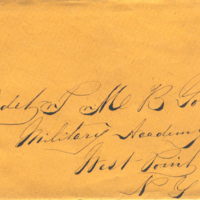 det T M R
Military Academy
West Point
N Y